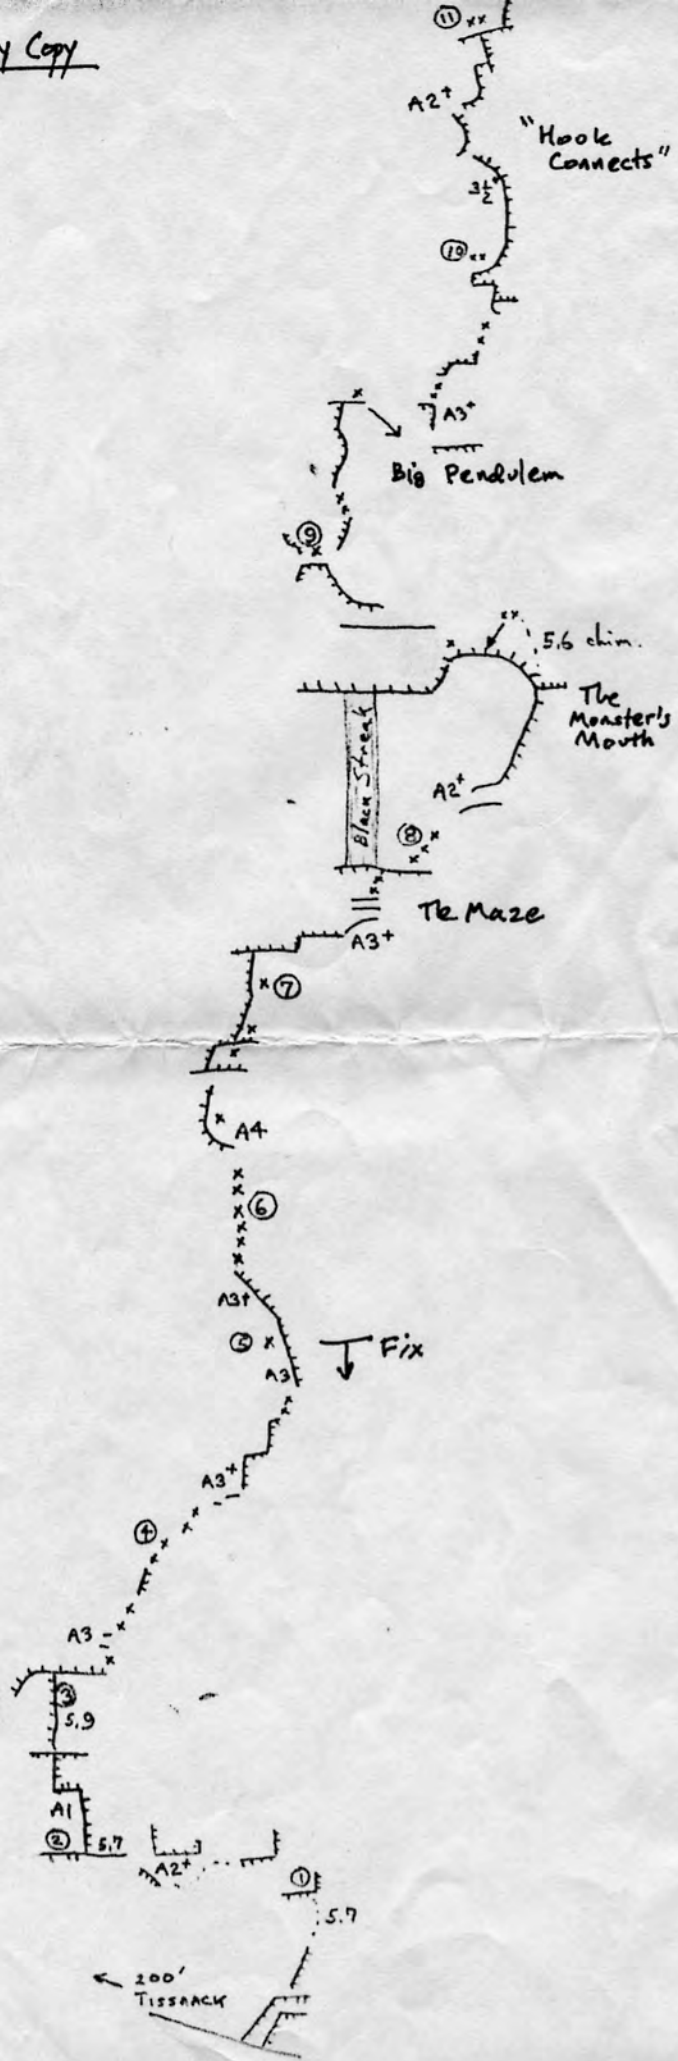 y Copy
⑪ xx
A2+
"Hook
Connects"
3½
⑩ xx
A3+
Big Pendulem
⑨
5.6 chim.
The
Monster's
Mouth
Black Streak
A2+
⑧
The Maze
A3+
⑦
A4
⑥
A3+
⑤
Fix
A3
A3+
④
A3
③
5.9
A1
②
5.7
A2+
①
5.7
200'
TISSAACK